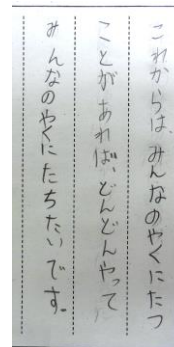 これからは、みんなのやくにたつ
ことがあれば、どんどんやって、
みんなのやくにたちたいです。